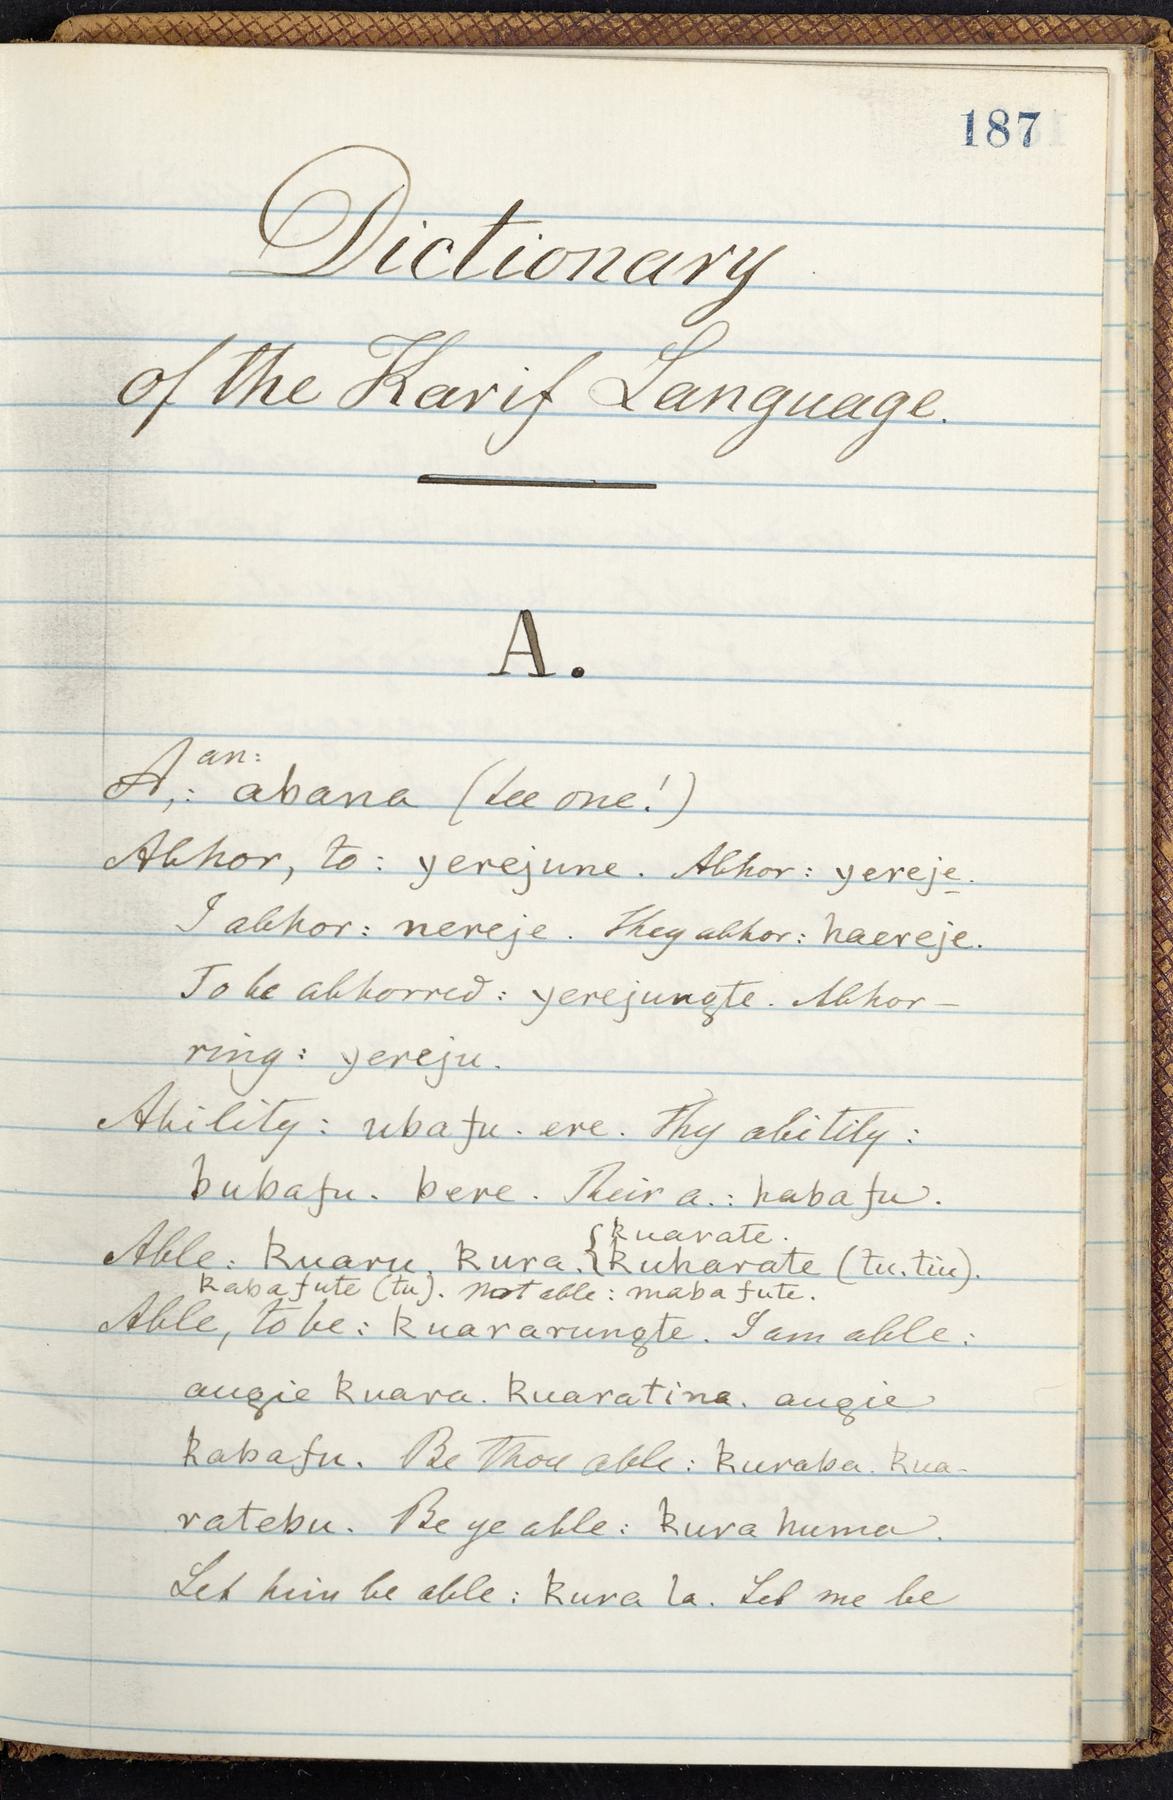 187
Dictionary
of the Karif Language.
A.
A, an: abana (see one!)
Abhor, to: yerejune. Abhor: yereje.
I abhor: nereje. They abhor: haereje.
To be abhorred: yerejungte. Abhor-
ring: yereju.
Ability: ubafu. ere. Thy ability:
bubafu. bere. Their a.: habafu.
Able: kuaru. kura. {kuarate.
{kuharate (tu. tiu).
kabafute (tu). not able: mabafute.
Able, to be: kuararungte. I am able:
augie kuara. kuaratina. augie
kabafu. Be thou able: kuraba. kua-
ratebu. Be ye able: kura huma.
Let him be able: kura la. Let me be